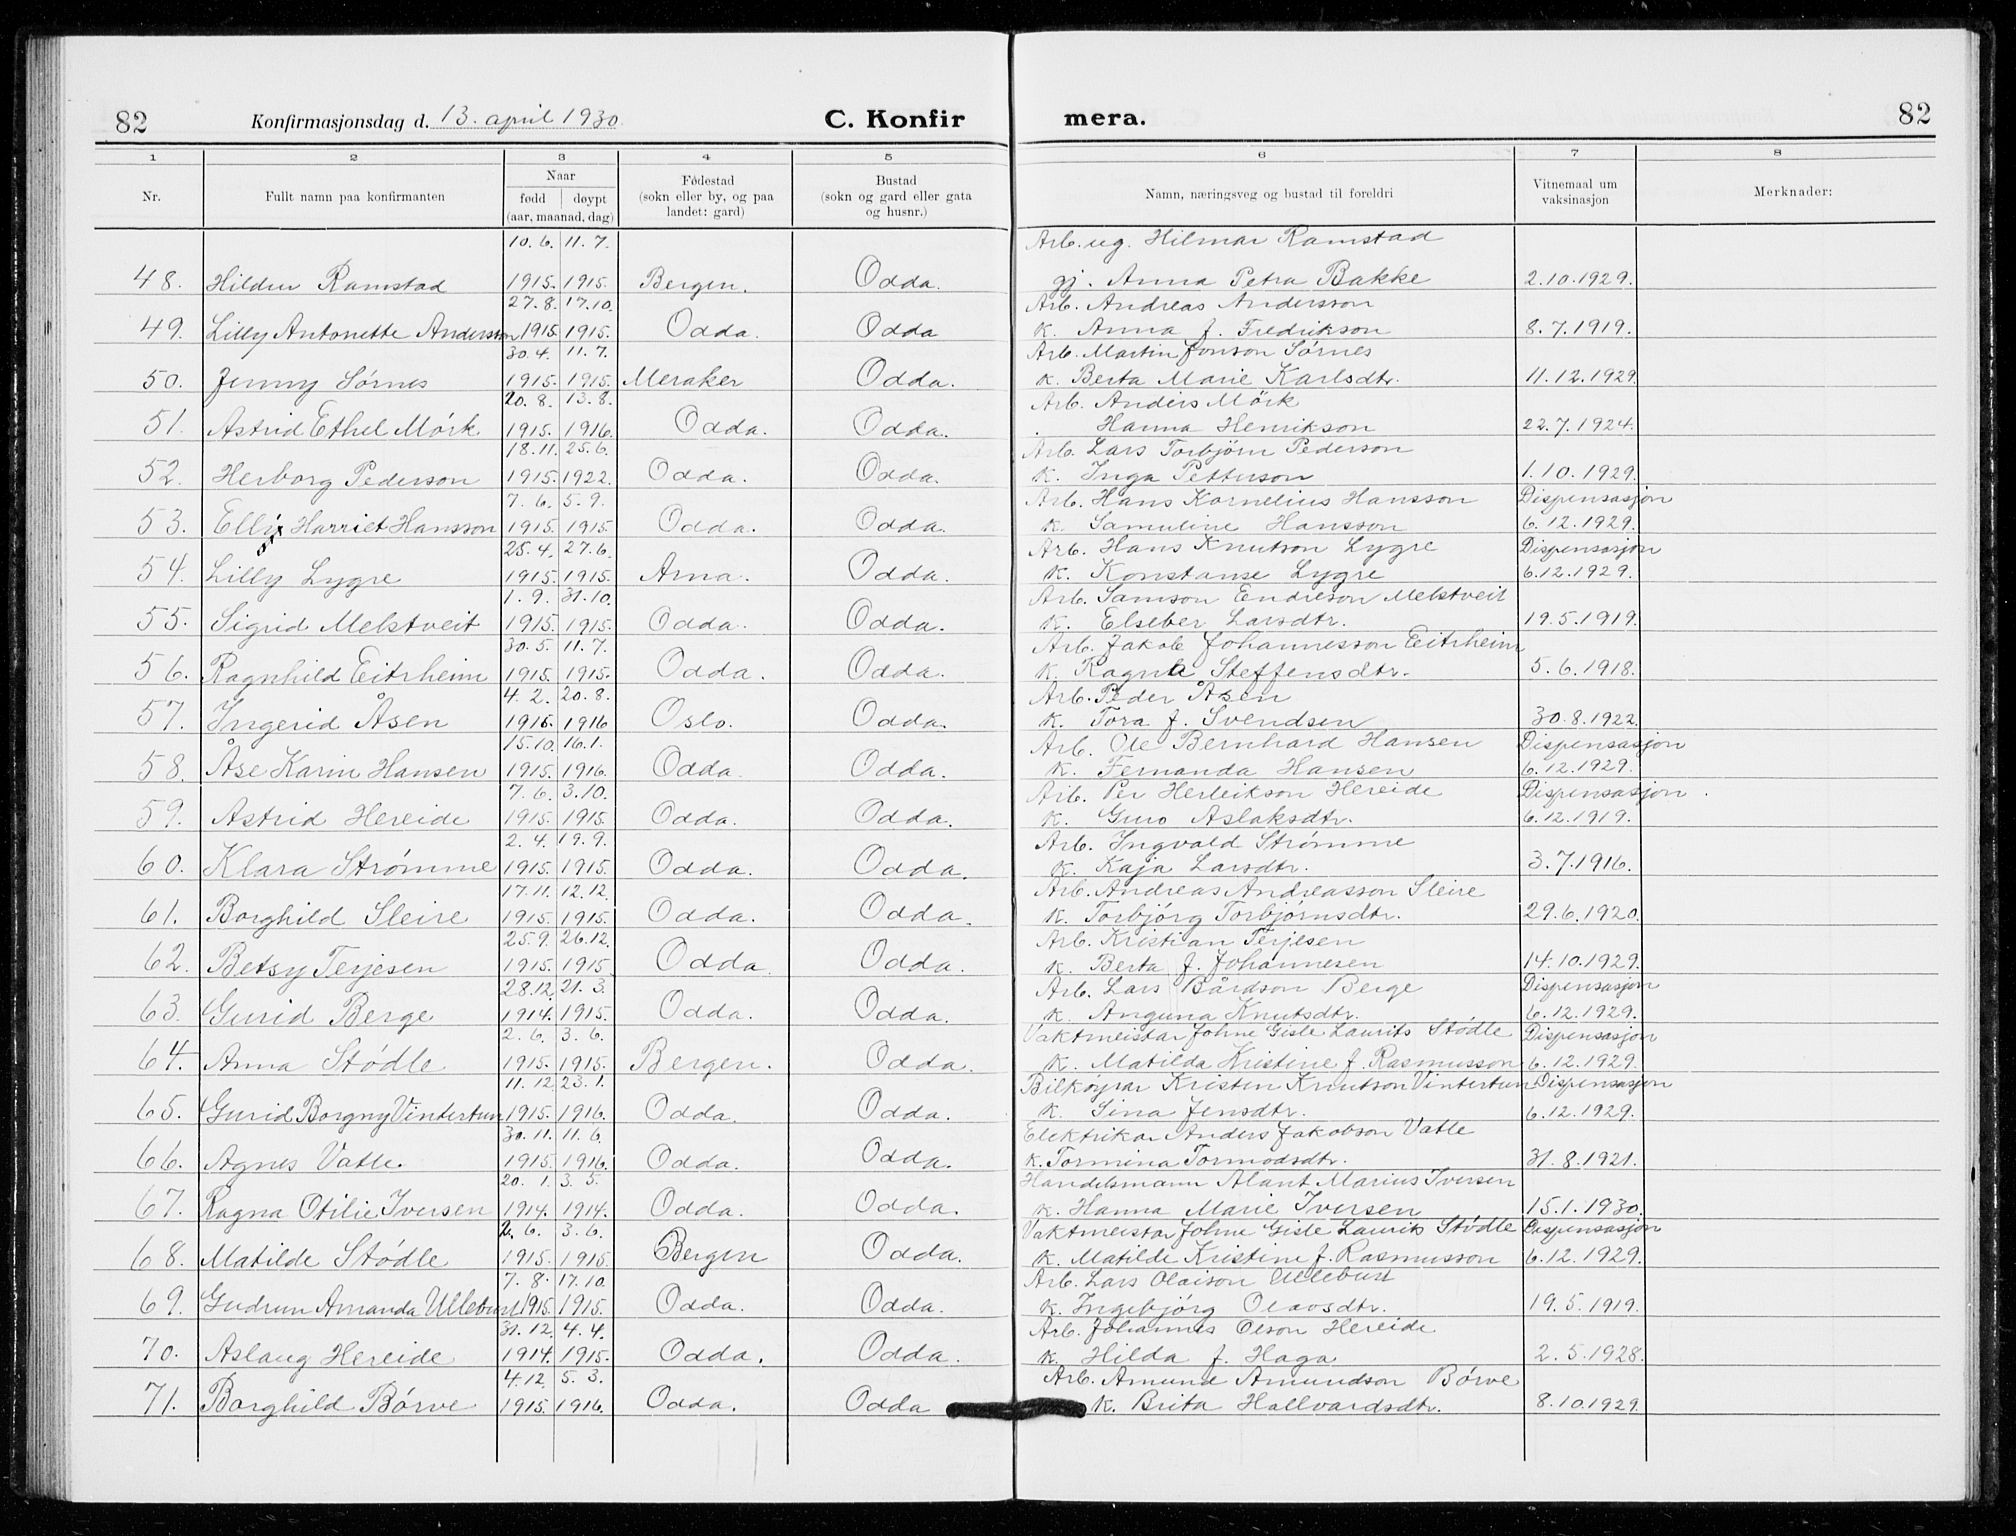 82 Konfirmasjonsdag d. 13. april 1930. C. Konfir mera. 82
1 2 3 4 5 6 7 8
Nr. Fullt namn paa konfirmanten Naar Fødestad Bustad Namn, næringsveg og bustad til foreldri Vitnemaal um Merknader:
født døypt (sokn eller by, og paa (sokn og gard eller gata vaksinasjon
(aar, maanad, dag) landet: gard) og husnr.)
10. 6. 11. 7. Arb. ug. Hilmar Ramstad
48. Hildur Ramstad 1915. 1915. Bergen. Odda. gj. Anna Petra Bakke 2.10.1929.
27. 8. 17.10. Arb. Andreas Andersson
49. Lilly Antonette Andersson 1915. 1915. Odda. Odda k. Anna f. Fredrikson 8.7.1919.
30. 4. 11. 7. Arb. Martin Jonson Sørnes
50. Jenny Sørnes 1915. 1915. Meraker Odda. k. Berta Marie Karlsdtr. 11.12.1929.
20. 8. 13. 8. Arb. Anders Mörk
51. Astrid Ethel Mörk 1915. 1916. Odda. Odda. Hanna Henrikson 22.7.1924.
18.11. 25.6. Arb. Lars Torbjörn Pederson
52. Herborg Pederson 1915. 1922. Odda. Odda. k. Inga Petterson 1.10.1929.
7. 6. 5. 9. Arb. Hans Kornelius Hansson Dispensasjon
53. Elly Harriet Hansson 1915. 1915. Odda. Odda. k. Samuline Hansson 6.12.1929.
25. 4. 27. 6. Arb. Hans Knutson Lygre Dispensasjon
54. Lilly Lygre 1915. 1915. Arna. Odda. k. Konstanse Lygre 6.12.1929.
1. 9. 31.10. Arb. Samson Endreson Melstveit
55. Sigrid Melstveit 1915. 1915. Odda. Odda. k. Elseber Larsdtr. 19.5.1919.
30. 5. 11. 7. Arb. Jakob Johannesson Eitrheim
56. Ragnhild Eitrheim 1915. 1915. Odda. Odda. k. Ragna Steffensdtr. 5.6.1918.
4. 2. 20. 8. Arb. Peder Åsen
57. Ingerid Åsen 1915. 1916 Oslo. Odda. k. Tora f. Svendsen 30.8.1922.
15.10. 16.1. Arb. Ole Bernhard Hansen Dispensasjon
58. Åse Karin Hansen 1915. 1916. Odda. Odda. k. Fernanda Hansen 6.12.1929.
7. 6. 3.10. Arb. Per Herleikson Hereide Dispensasjon
59. Astrid Hereide 1915. 1915. Odda. Odda. k. Guro Aslaksdtr. 6.12.1919.
2. 4. 19. 9. Arb. Ingvald Strømme
60. Klara Strømme 1915. 1915. Odda. Odda. k. Kaja Larsdtr. 3.7.1916.
17.11. 12.12. Arb. Andreas Andreasson Sleire
61. Borghild Sleire 1915. 1915. Odda. Odda. k. Torbjörg Torbjörnsdtr. 29.6.1920.
25.9. 26.12. Arb. Kristian Terjesen
62. Betsy Terjesen 1915. 1915 Odda. Odda. k. Berta f. Johannesen 14.10.1929.
28.12. 21. 3. Arb. Lars Bårdson Berge Dispensasjon
63. Gurid Berge 1914. 1915. Odda. Odda. k. Anguna Knutsdtr. 6.12.1929.
2. 6. 3. 6. Vaktmeistar Johne Gisle Laurits Stödle Dispensasjon
64. Anna Stödle 1915. 1915. Bergen. Odda. k. Matilda Kristine f. Rasmusson 6.12.1929.
11. 12. 23.1. Bilköyrar Kristen Knutson Vintertun Dispensasjon
65. Gurid Borgny Vintertun 1915. 1916. Odda. Odda. k. Sina Jensdtr. 6.12.1929.
30. 11. 11. 6. Elektrikar Anders Jakobson Vatle
66. Agnes Vatle. 1915. 1916. Odda. Odda. k. Tormina Tormodsdtr. 31.8.1921.
20. 1. 3. 5. Handelsmann Alant Marius Iversen
67. Ragna Otilie Iversen 1914. 1914. Odda. Odda. k. Hanna Marie Iversen 15.1.1930.
2. 6. 3. 6. Vaktmeistar Johne Gisle Laurits Stödle Dispensasjon
68. Matilde Stödle 1915. 1915. Bergen Odda. k. Matilde Kristine f. Rasmusson 6.12.1929.
7. 8. 17.10. Arb. Lars Olaison Ullebust
69. Gudrun Amanda Ullebust 1915. 1915. Odda. Odda. k. Ingebjörg Olavsdtr. 19.5.1919.
31. 12. 4. 4. Arb. Johannes Olson Hereide
70. Aslaug Hereide 1914. 1915. Odda. Odda. k. Hilda f. Haga 2.5.1928.
4.12. 5. 3. Arb. Amund Amundson Börve
71. Borghild Börve 1915. 1916. Odda. Odda k. Brita Hallvardsdtr. 8.10.1929.